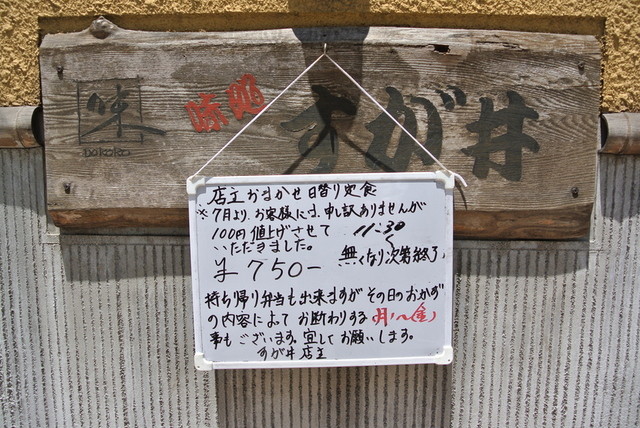 味
DOKORO
味処
すが井
店主おまかせ日替り定食
※7月より、お客様には、申し訳ありませんが
100円値上げさせて
いただきました。
11:30〜
無くなり次第終了
¥750-
持ち帰り弁当も出来ますがその日のおかず
の内容によってお断わりする 月〜金
事もございます。宜しくお願いします。
すが井店主